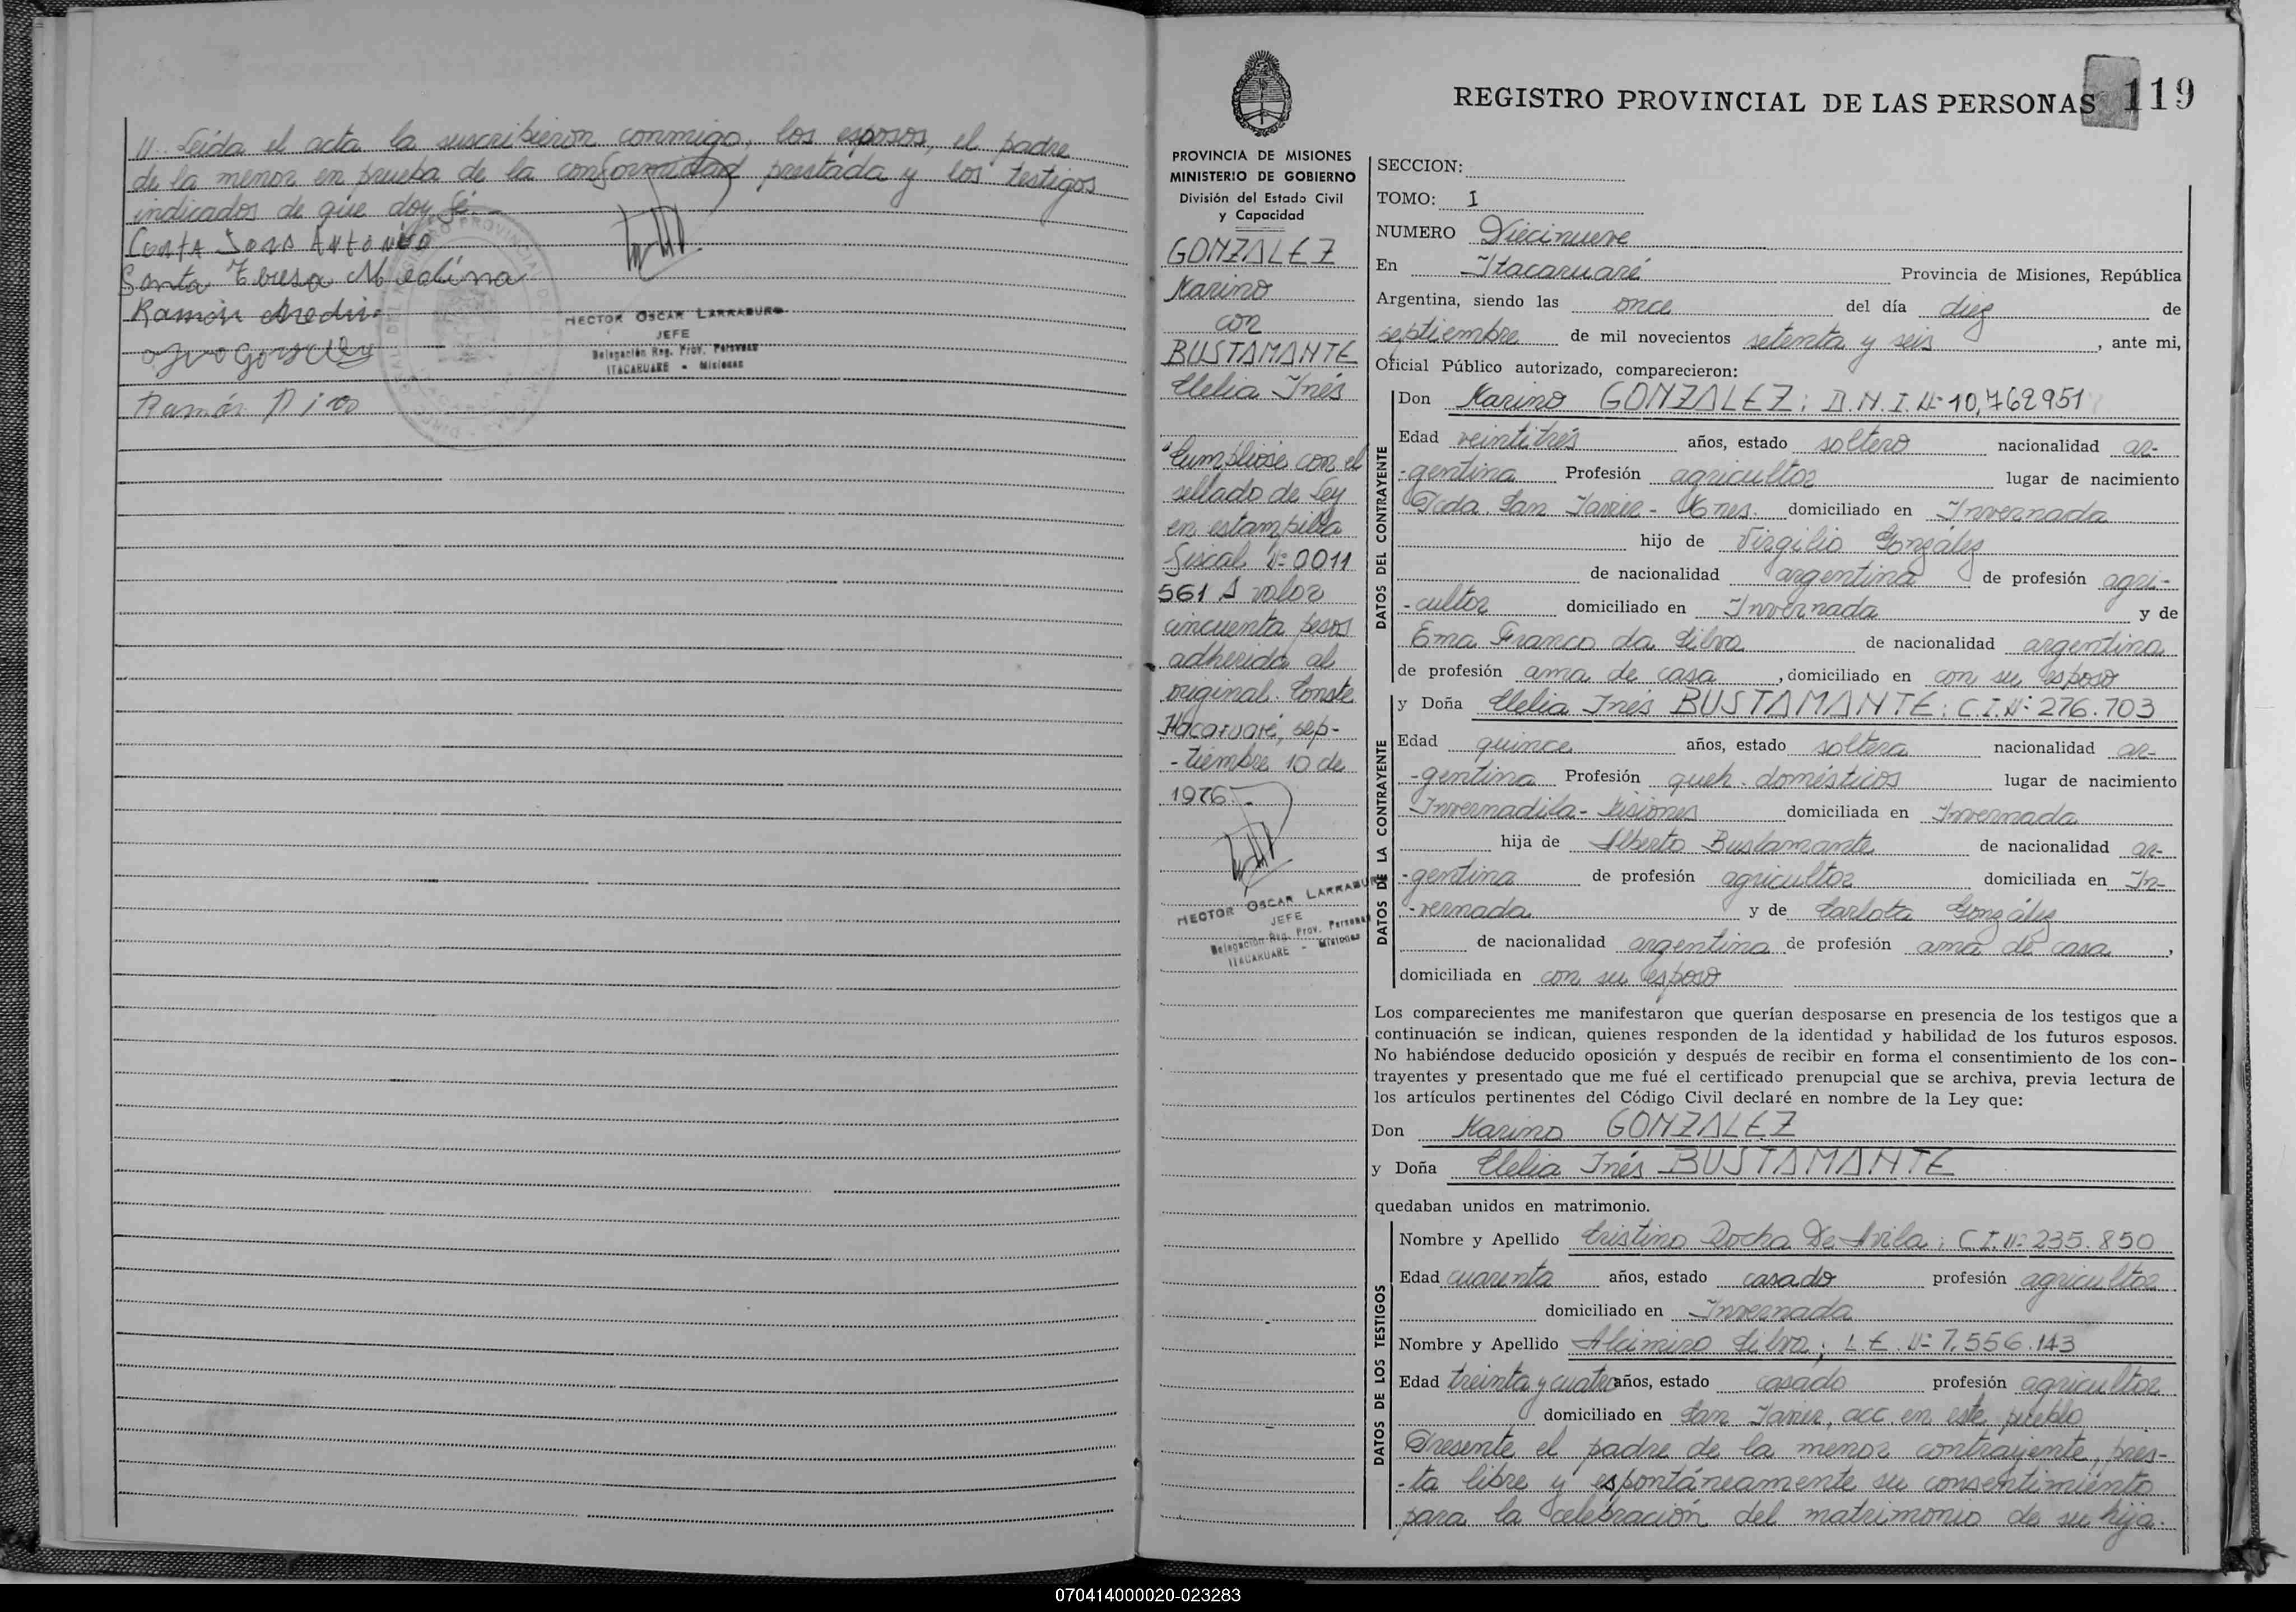 11.. Leída el acta la suscribieron conmigo, los esposos, el padre
de la menor en prueba de la conformidad prestada y los testigos
indicados de que doy fé.
Santa Teresa Medina
Ramón
Ramón
HECTOR OSCAR LARRABURU
JEFE
Delegación Reg. Prov. Personas
ITACARUARE - Misiones
PROVINCIA DE MISIONES
MINISTERIO DE GOBIERNO
División del Estado Civil
y Capacidad
GONZALEZ
Marino
con
BUSTAMANTE
Clelia Inés
Cumpliose con el
sellado de Ley
en estampilla
fiscal Nº 0011
561 A valor
cincuenta pesos
adherida al
original. Conste
Itacaruaré, sep-
-tiembre 10 de
1976.-
HECTOR OSCAR LARRABURU
JEFE
Delegación Reg. Prov. Personas
ITACARUARE - Misiones
REGISTRO PROVINCIAL DE LAS PERSONAS 119
SECCION:
TOMO: I
NUMERO Diecinueve
En Itacaruaré Provincia de Misiones, República
Argentina, siendo las once del día diez de
septiembre de mil novecientos setenta y seis, ante mi,
Oficial Público autorizado, comparecieron:
DATOS DEL CONTRAYENTE
Don Marino GONZALEZ; D.N.I. Nº 10,762951
Edad veintitrés años, estado soltero nacionalidad ar-
-gentina Profesión agricultor lugar de nacimiento
Pcda. San Javier - Mnes. domiciliado en Invernada
hijo de Virgilio González
de nacionalidad argentina de profesión agri-
-cultor domiciliado en Invernada y de
Ema Franco da Silva de nacionalidad argentina
de profesión ama de casa, domiciliado en con su esposo
DATOS DE LA CONTRAYENTE
y Doña Clelia Inés BUSTAMANTE; C.I.Nº 276.703
Edad quince años, estado soltera nacionalidad ar-
-gentina Profesión queh. domésticos lugar de nacimiento
Invernadita - Misiones domiciliada en Invernada
hija de Alberto Bustamante de nacionalidad ar-
-gentina de profesión agricultor domiciliada en In-
-vernada y de Carlota González
de nacionalidad argentina de profesión ama de casa,
domiciliada en con su esposo
Los comparecientes me manifestaron que querían desposarse en presencia de los testigos que a
continuación se indican, quienes responden de la identidad y habilidad de los futuros esposos.
No habiéndose deducido oposición y después de recibir en forma el consentimiento de los con-
trayentes y presentado que me fué el certificado prenupcial que se archiva, previa lectura de
los artículos pertinentes del Código Civil declaré en nombre de la Ley que:
Don Marino GONZALEZ
y Doña Clelia Inés BUSTAMANTE
quedaban unidos en matrimonio.
DATOS DE LOS TESTIGOS
Nombre y Apellido Cristino Rocha De Avila; C.I. Nº 235.850
Edad cuarenta años, estado casado profesión agricultor
domiciliado en Invernada
Nombre y Apellido Alcimiro Silva; L.E. Nº 7.556.143
Edad treinta y cuatro años, estado casado profesión agricultor
domiciliado en San Javier, acc. en este pueblo
Presente el padre de la menor contrayente, pres-
-ta libre y espontáneamente su consentimiento
para la celebración del matrimonio de su hija.
070414000020-023283